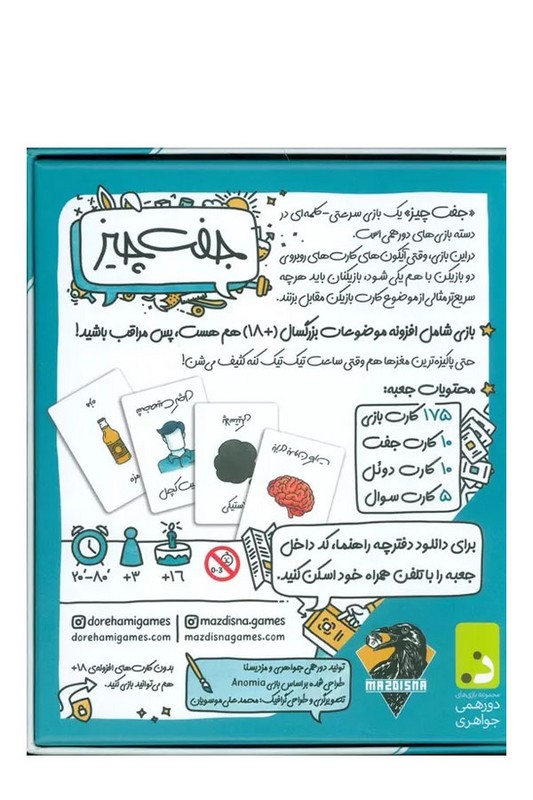 جفت چیز
«جفت چیز» یک بازی سرعتی-کلمه‌ای در
دسته بازی‌های دورهمی است.
در این بازی، وقتی آیکون‌های کارت‌های روبروی
دو بازیکن با هم یکی شود، بازیکنان باید هرچه
سریع‌تر مثالی از موضوع کارت بازیکن مقابل بزنند.
بازی شامل افزونه موضوعات بزرگسال (۱۸+) هم هست، پس مراقب باشید!
حتی پاکیزه‌ترین مغزها هم وقتی ساعت تیک تیک کنه کثیف می‌شن!
محتویات جعبه:
۱۷۵ کارت بازی
۱۰ کارت جفت
۱۰ کارت دوئل
۵ کارت سوال
مزه
برای دانلود دفترچه راهنما، کد داخل
جعبه را با تلفن همراه خود اسکن کنید.
۲۰-۸۰'
+۳
+۱۶
0-3
dorehamigames
mazdisna.games
dorehamigames.com
mazdisnagames.com
بدون کارت‌های افزونه‌ی ۱۸+
هم می‌توانید بازی کنید.
تولید دورهمی جواهری و مزدیسنا
طراحی شده بر اساس بازی Anomia
تصویرگری و طراحی گرافیک: محمد علی موسویان
MAZDISNA
مجموعه بازی‌های
دورهمی
جواهری